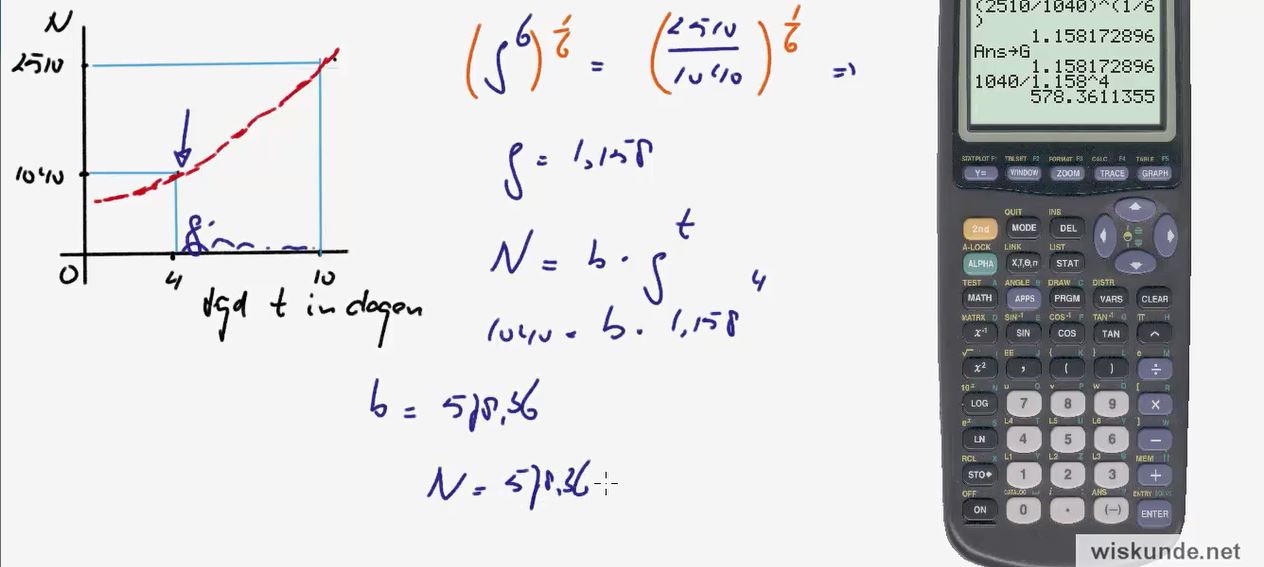 N
2510
1040
0
4
10
tijd t in dagen
(g^6)^1/6 = (2510/1040)^1/6 =>
g = 1,158
N = b · g^t
1040 = b · 1,158^4
b = 578,36
N = 578,36
(2510/1040)^(1/6
)
1.158172896
Ans→G
1.158172896
1040/1.158^4
578.3611355
STAT PLOT F1 TBLSET F2 FORMAT F3 CALC F4 TABLE F5
Y= WINDOW ZOOM TRACE GRAPH
QUIT INS
2nd MODE DEL
A-LOCK LINK LIST
ALPHA X,T,Θ,n STAT
TEST A ANGLE B DRAW C DISTR
MATH APPS PRGM VARS CLEAR
MATRX D SIN⁻¹ E COS⁻¹ F TAN⁻¹ G π H
x⁻¹ SIN COS TAN ^
√ I EE J { K } L e M
x² , ( ) ÷
10ˣ N u O v P w Q [ R
LOG 7 8 9 ×
eˣ S L4 T L5 U L6 V ] W
LN 4 5 6 −
RCL X L1 Y L2 Z L3 θ MEM "
STO▸ 1 2 3 +
OFF CATALOG i : ANS ? ENTRY SOLVE
ON 0 . (−) ENTER
wiskunde.net